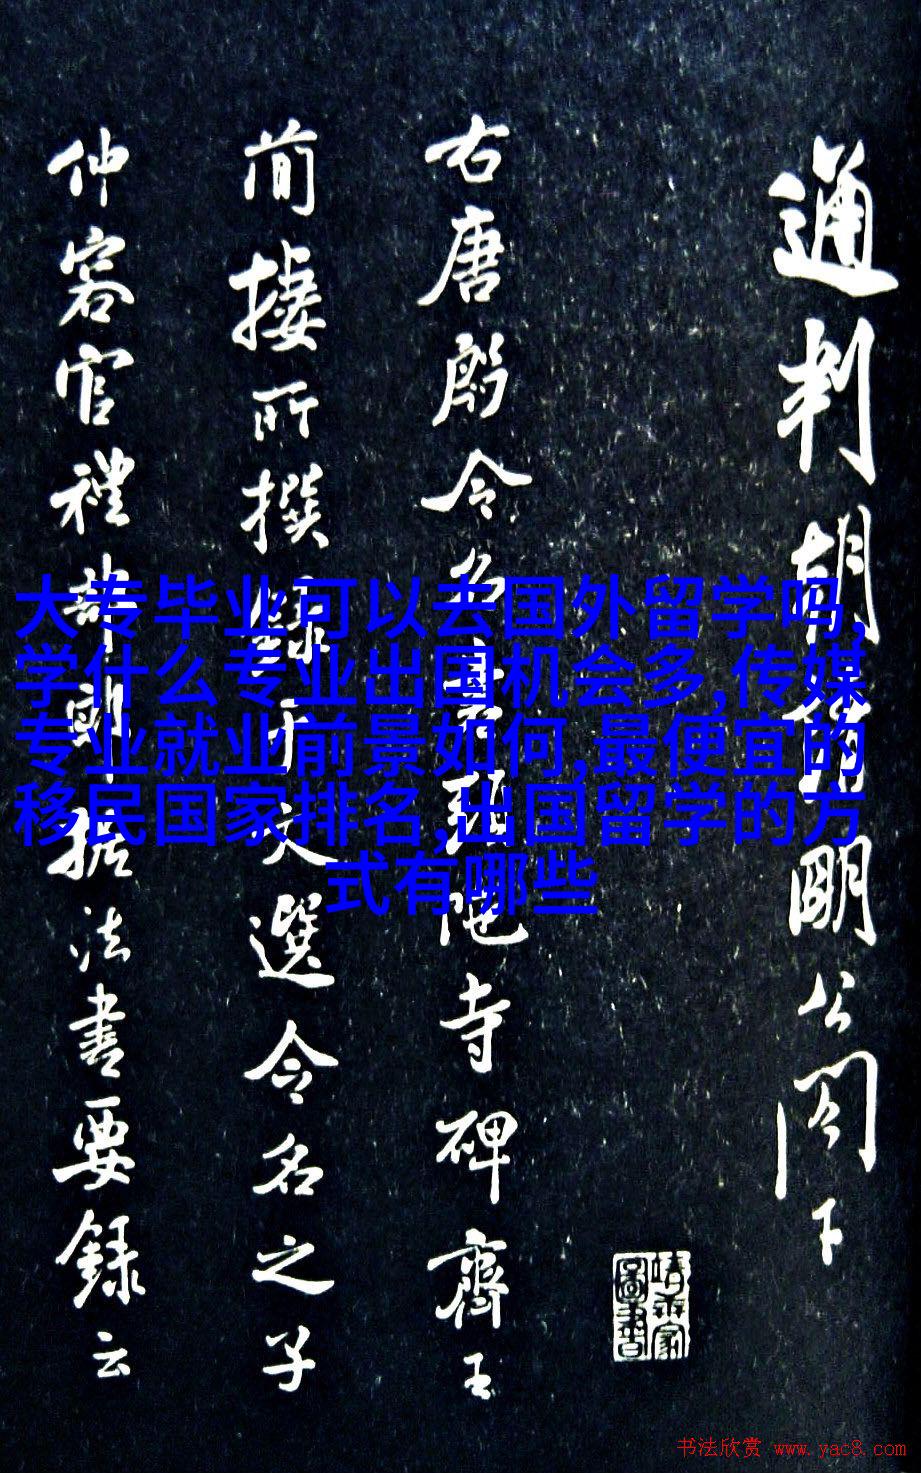 通判胡明公閤下
右唐殷令名書頭陁寺碑齊王
簡棲所撰錄于文選令名之子
仲容官禮部郎據法書要錄云
大专毕业可以去国外留学吗,
学什么专业出国机会多,传媒
专业就业前景如何,最便宜的
移民国家排名,出国留学的方
式有哪些
书法欣赏 www.yac8.com